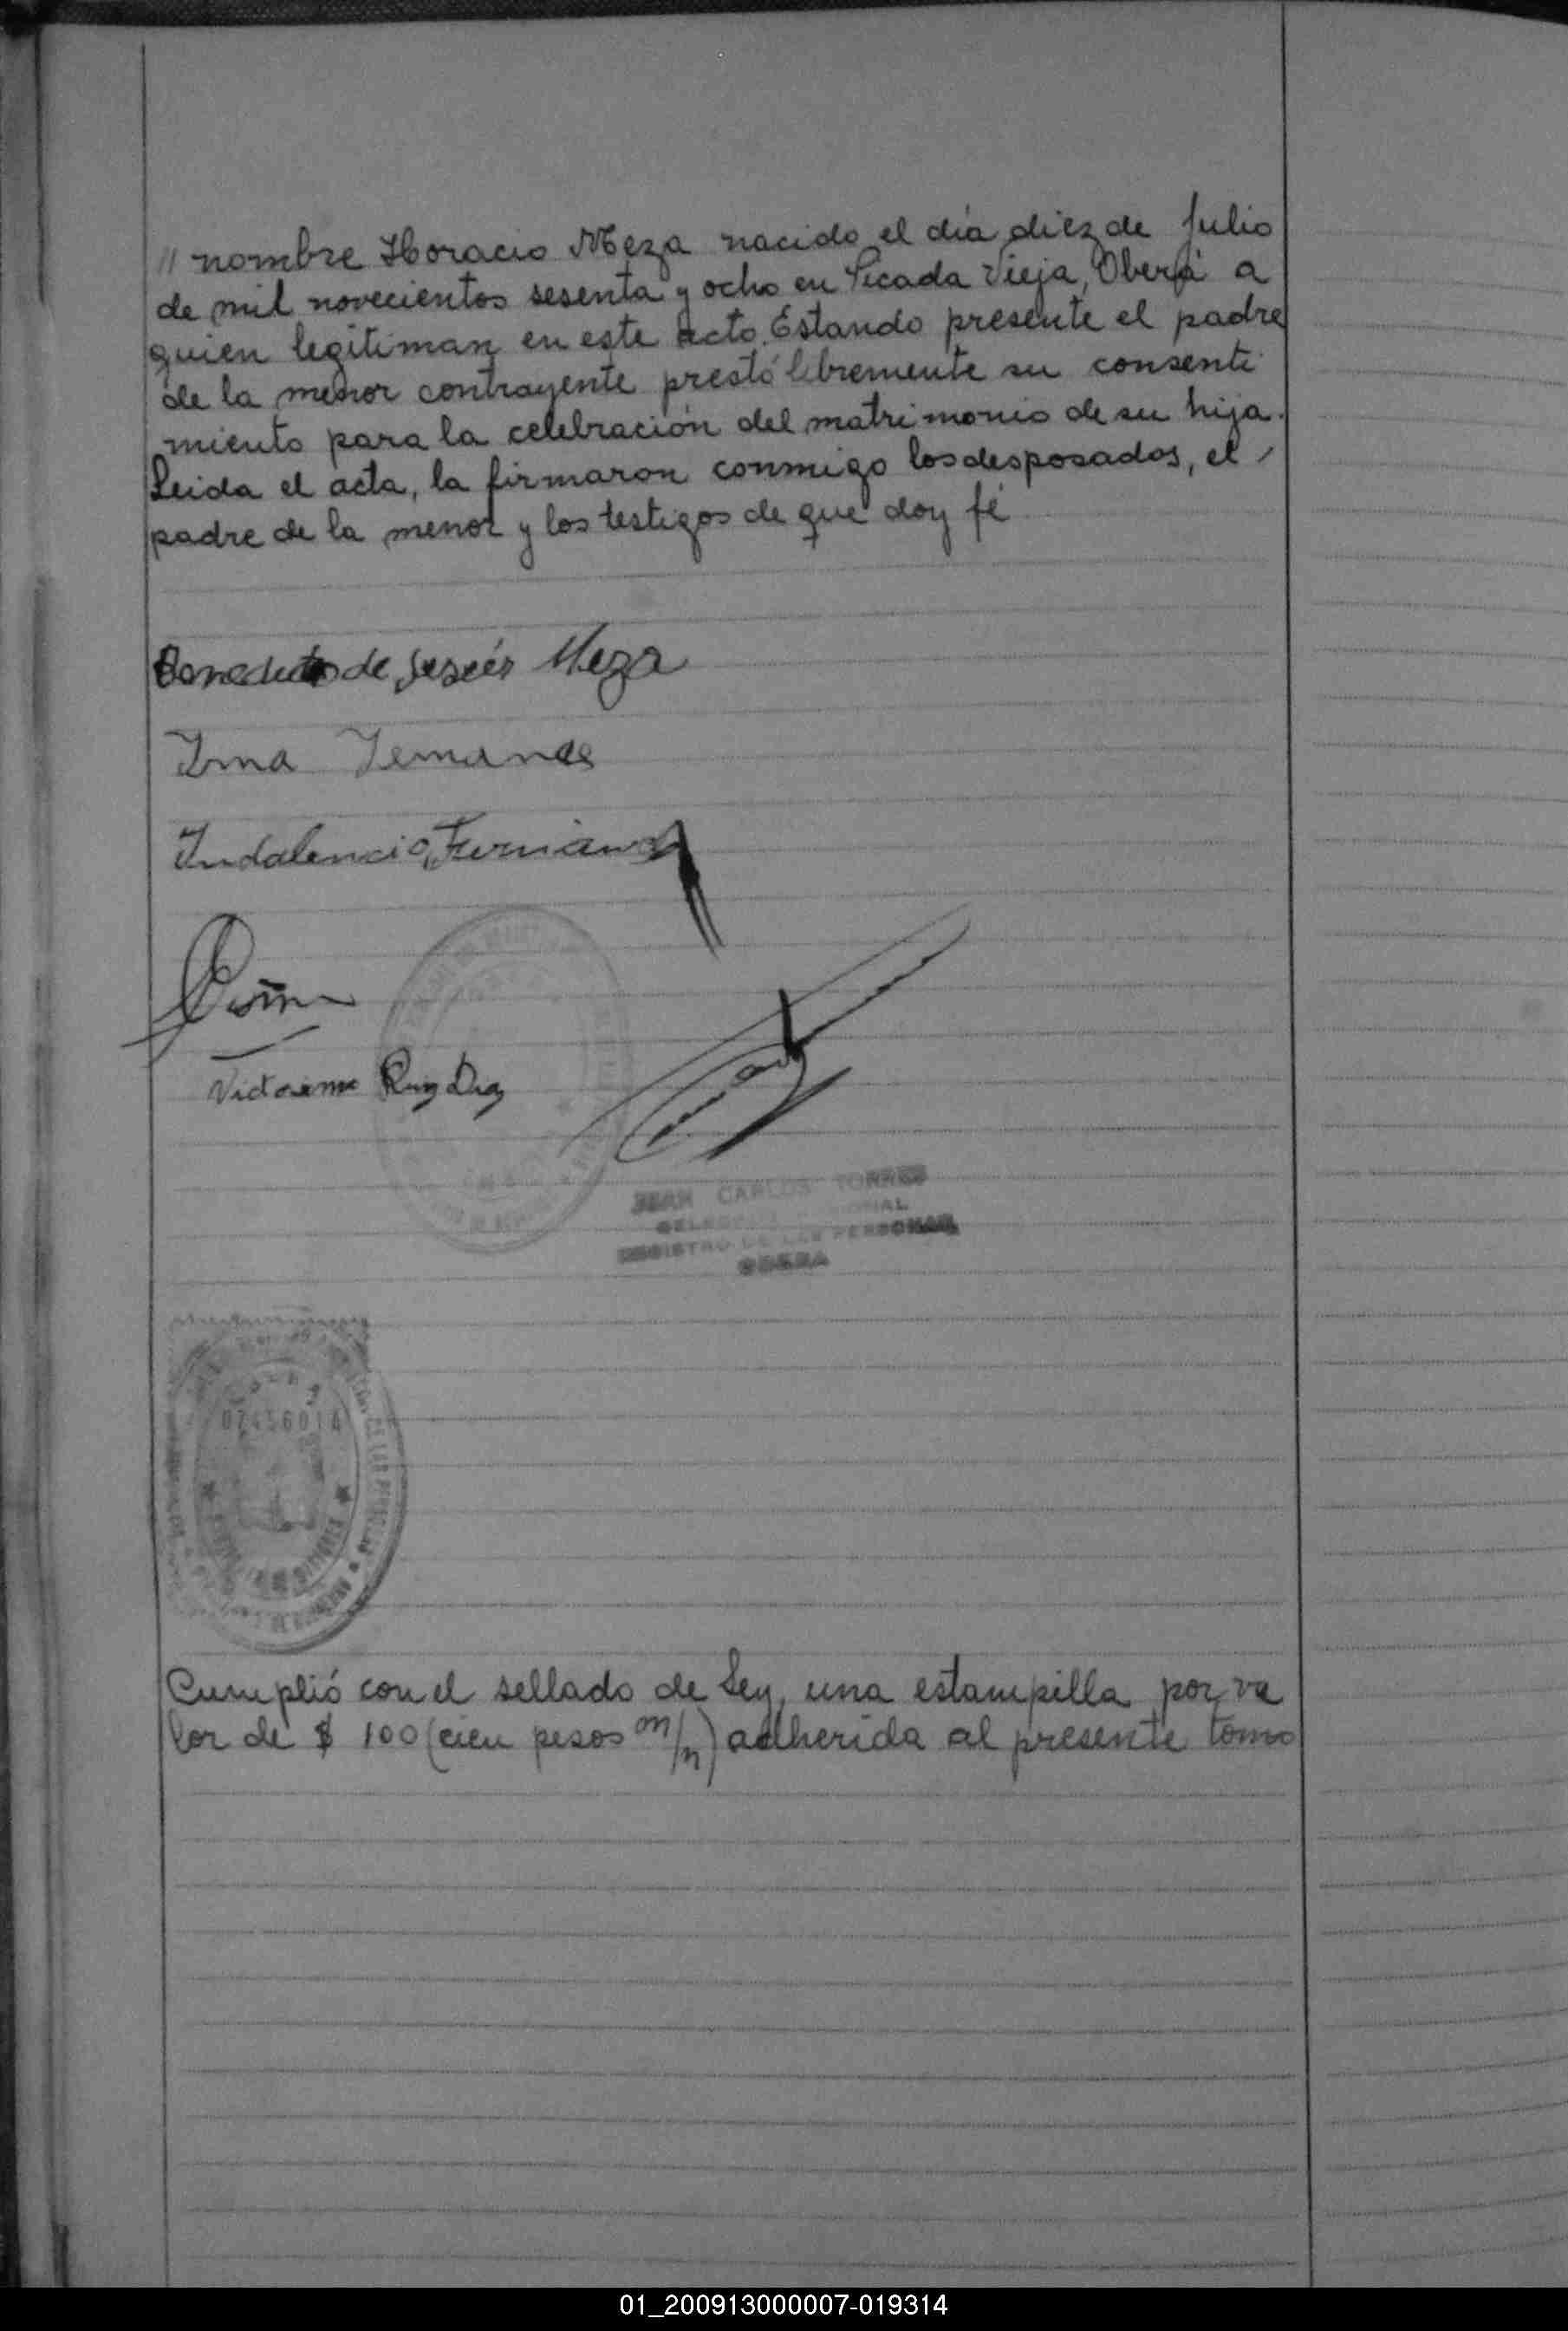 // nombre Horacio Meza nacido el día diez de Julio
de mil novecientos sesenta y ocho en Picada Vieja, Oberá a
quien legitiman en este acto. Estando presente el padre
de la menor contrayente prestó libremente su consenti
miento para la celebración del matrimonio de su hija.
Leida el acta, la firmaron conmigo los desposados, el /
padre de la menor y los testigos de que doy fé
de Jesús Meza
Irma
Indalencio
Ruiz Diaz
JUAN CARLOS TORRES
REGISTRO DE LAS PERSONAS
OBERA
Cumplió con el sellado de Ley, una estampilla por va
lor de $ 100 (cien pesos m/n) adherida al presente tomo
01_200913000007-019314